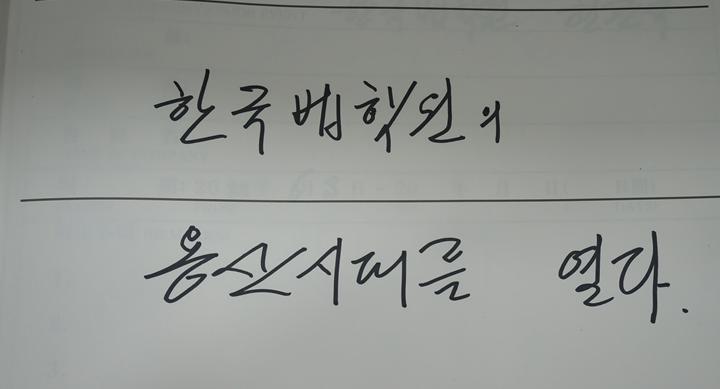 한국법학원의
용산시대를 열다.